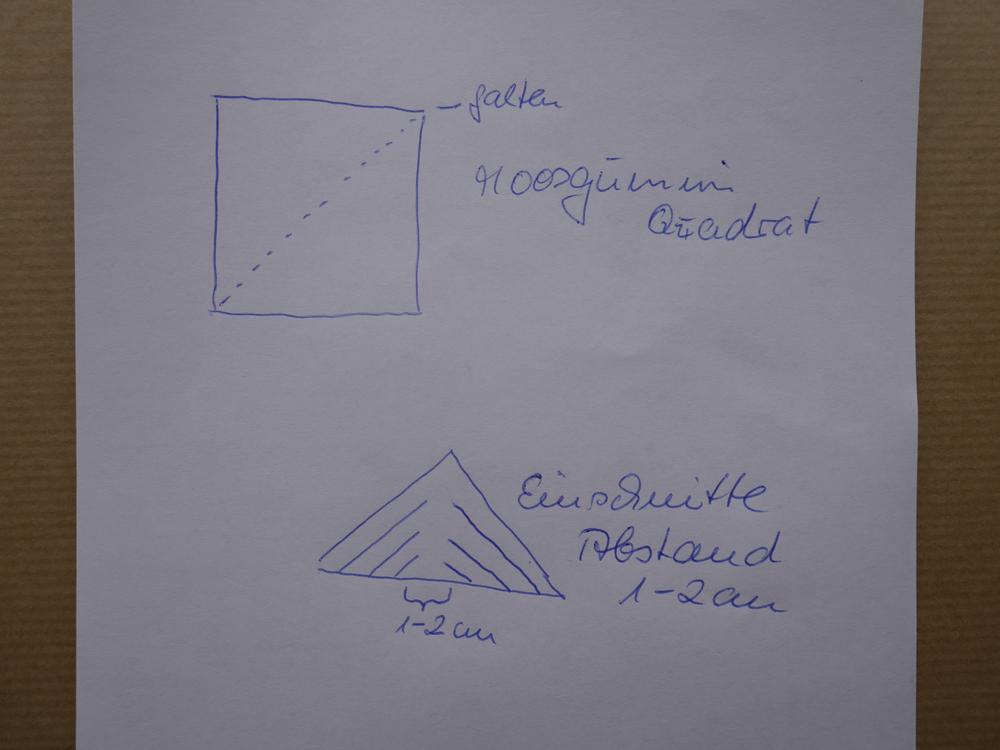 falten
Moosgummi
Quadrat
Einschnitte
Abstand
1-2cm
1-2cm